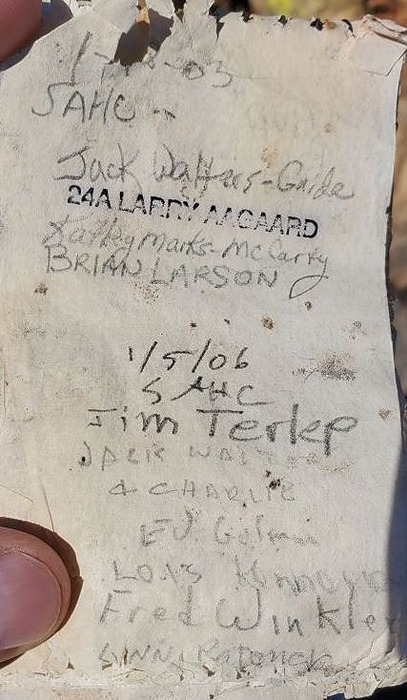 SAHC -
Jack Walters - Guide
24A LARRY AAGAARD
Kathey Marks-McCarty
BRIAN LARSON
1/5/06
SAHC
Jim Terlep
JACK
& CHARLIE
ED
LOIS
Fred Winkler